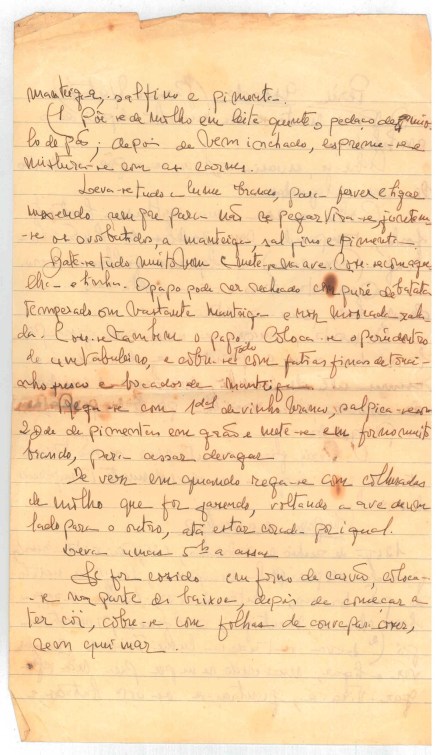 manteiga, sal fino e pimenta.
(1 Põe-se de molho em leite quente o pedaço de miolo
lo de pão; depois de bem inchado, espreme-se e
mistura-se com as carnes.
Leva-se tudo a lume brando, para ferver e ligar
mexendo sempre para não se pegar. juntam
-se os ovos batidos, a manteiga, sal fino e pimenta.
Bate-se tudo muito bem e mete-se na ave. Com
elha e linha. O papo pode ser recheado com puré de batata
temperado com bastante manteiga e noz moscada rala
da. Cose-se também o papo. Coloca-se o peru dentro
de um tabuleiro, e cobre-se todo com fatias finas de touci-
nho fresco e bocados de manteiga.
Rega-se com 1 del de vinho branco, salpica-se com
2 de pimenta em grão e mete-se em forno muito
brando, para assar devagar
De vez em quando rega-se com colheradas
de molho que for fazendo, voltando a ave de um
lado para o outro, até estar corada por igual.
Leva umas 5 hs a assar
Se for cozido em forno de carvão, coloca-
-se na parte de baixo, depois de começar a
ter côr, cobre-se com folhas de couve para
sem queimar.